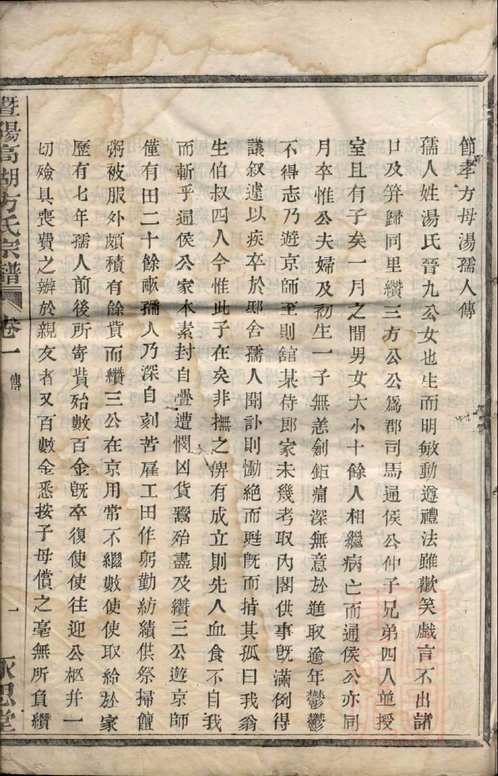 節孝方母湯孺人傳
孺人姓湯氏晉九公女也生而明敏動遵禮法雖歡笑戲言不出諸
口及笄歸同里纘三方公公爲郡司馬通侯公仲子兄弟四人並授
室且有子矣一月之間男女大小十餘人相繼病亡而通侯公亦同
月卒惟公夫婦及初生一子無恙創鉅痛深無意於進取逾年鬱鬱
不得志乃遊京師至則舘某侍郎家未幾考取內閣供事既滿例得
議叙遽以疾卒於邸舍孺人聞訃則慟絶而甦既而撫其孤曰我翁
生伯叔四人今惟此子在矣非撫之俾有成立則先人血食不自我
而斬乎通侯公家本素封自疊遭憫凶貨鬻殆盡及纘三公遊京師
僅有田二十餘畝孺人乃深自刻苦雇工田作躬勤紡績供祭掃饘
粥被服外頗積有餘貲而纘三公在京用常不繼數使使取給於家
歷有七年孺人前後所寄貲殆數百金既卒復使使往迎公柩并一
切殮具喪費之辦於親友者又百數金悉按子母償之毫無所負纘
暨陽高湖方氏宗譜
卷一
傳
一
永思堂